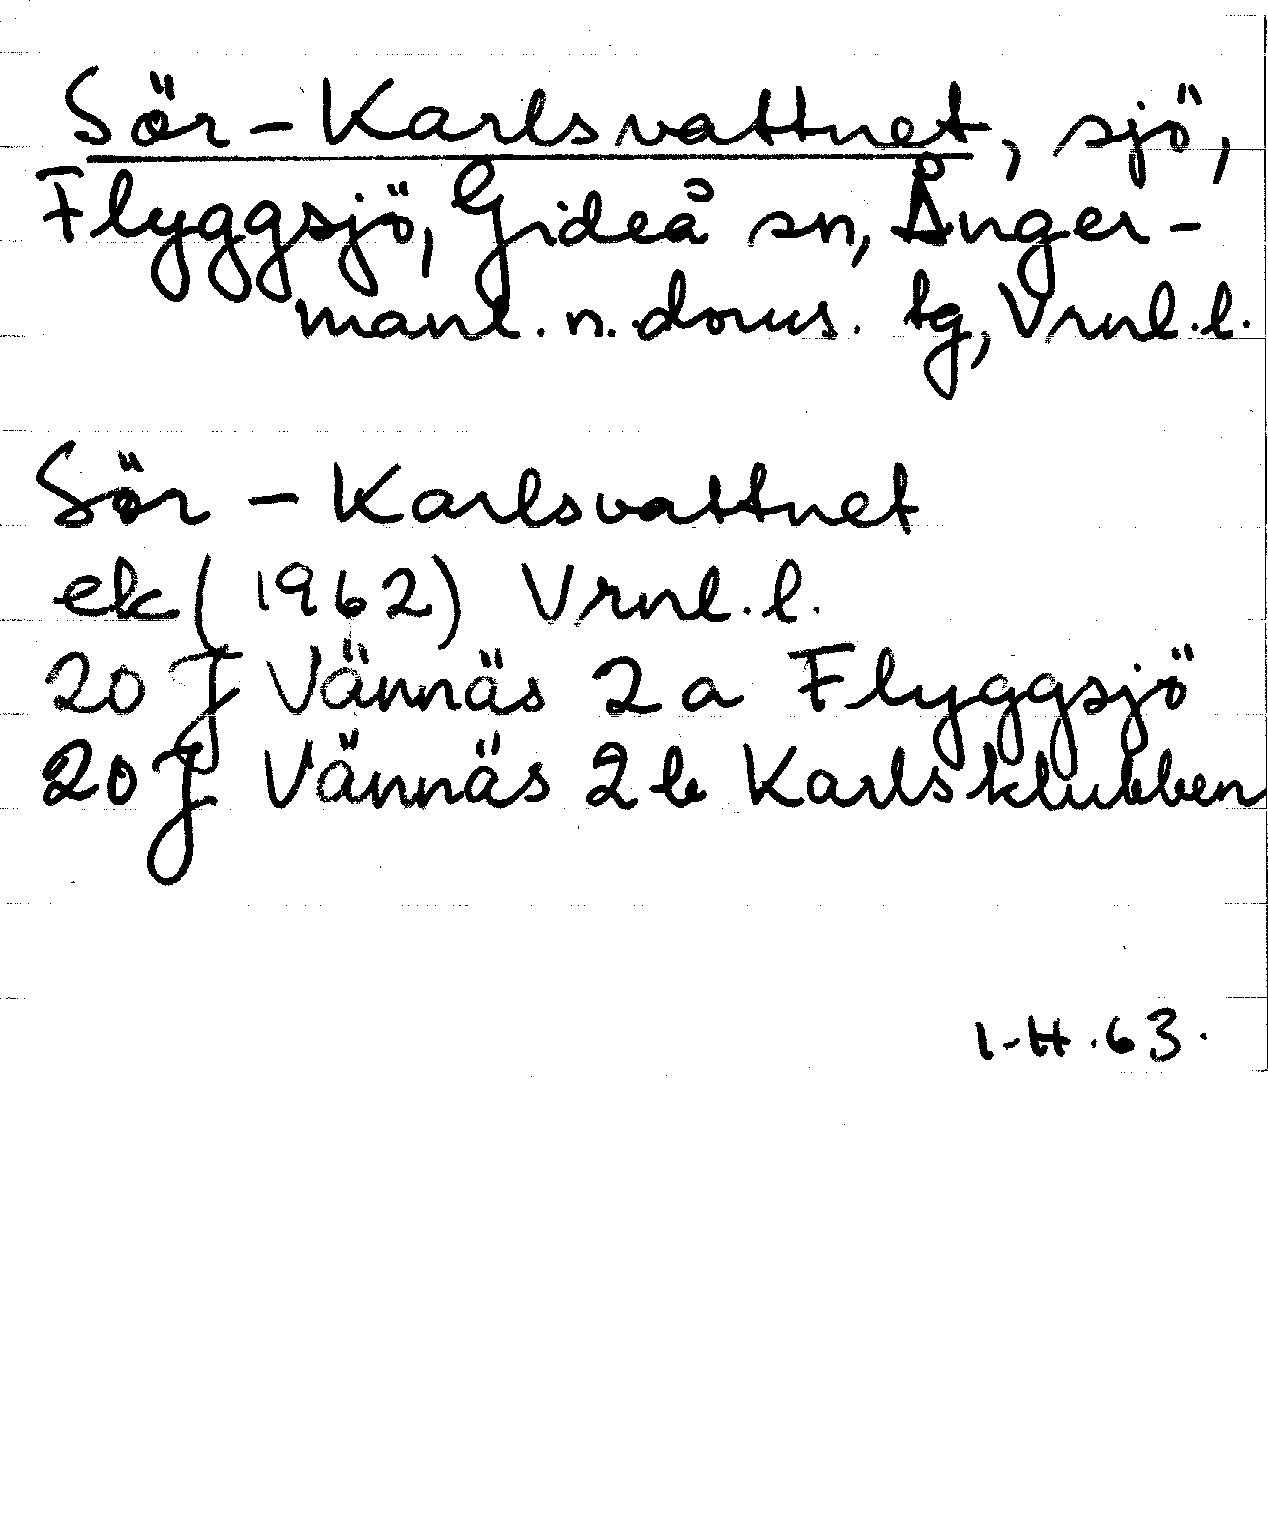 Sör-Karlsvattnet, sjö,
Flyggsjö, Gideå sn, Ånger-
manl. n. doms. tg, Vrnl. l.
Sör-Karlsvattnet
ek (1962) Vrnl. l.
20 J Vännäs 2a Flyggsjö
20 J Vännäs 2b Karlsklubben
I.H.63.